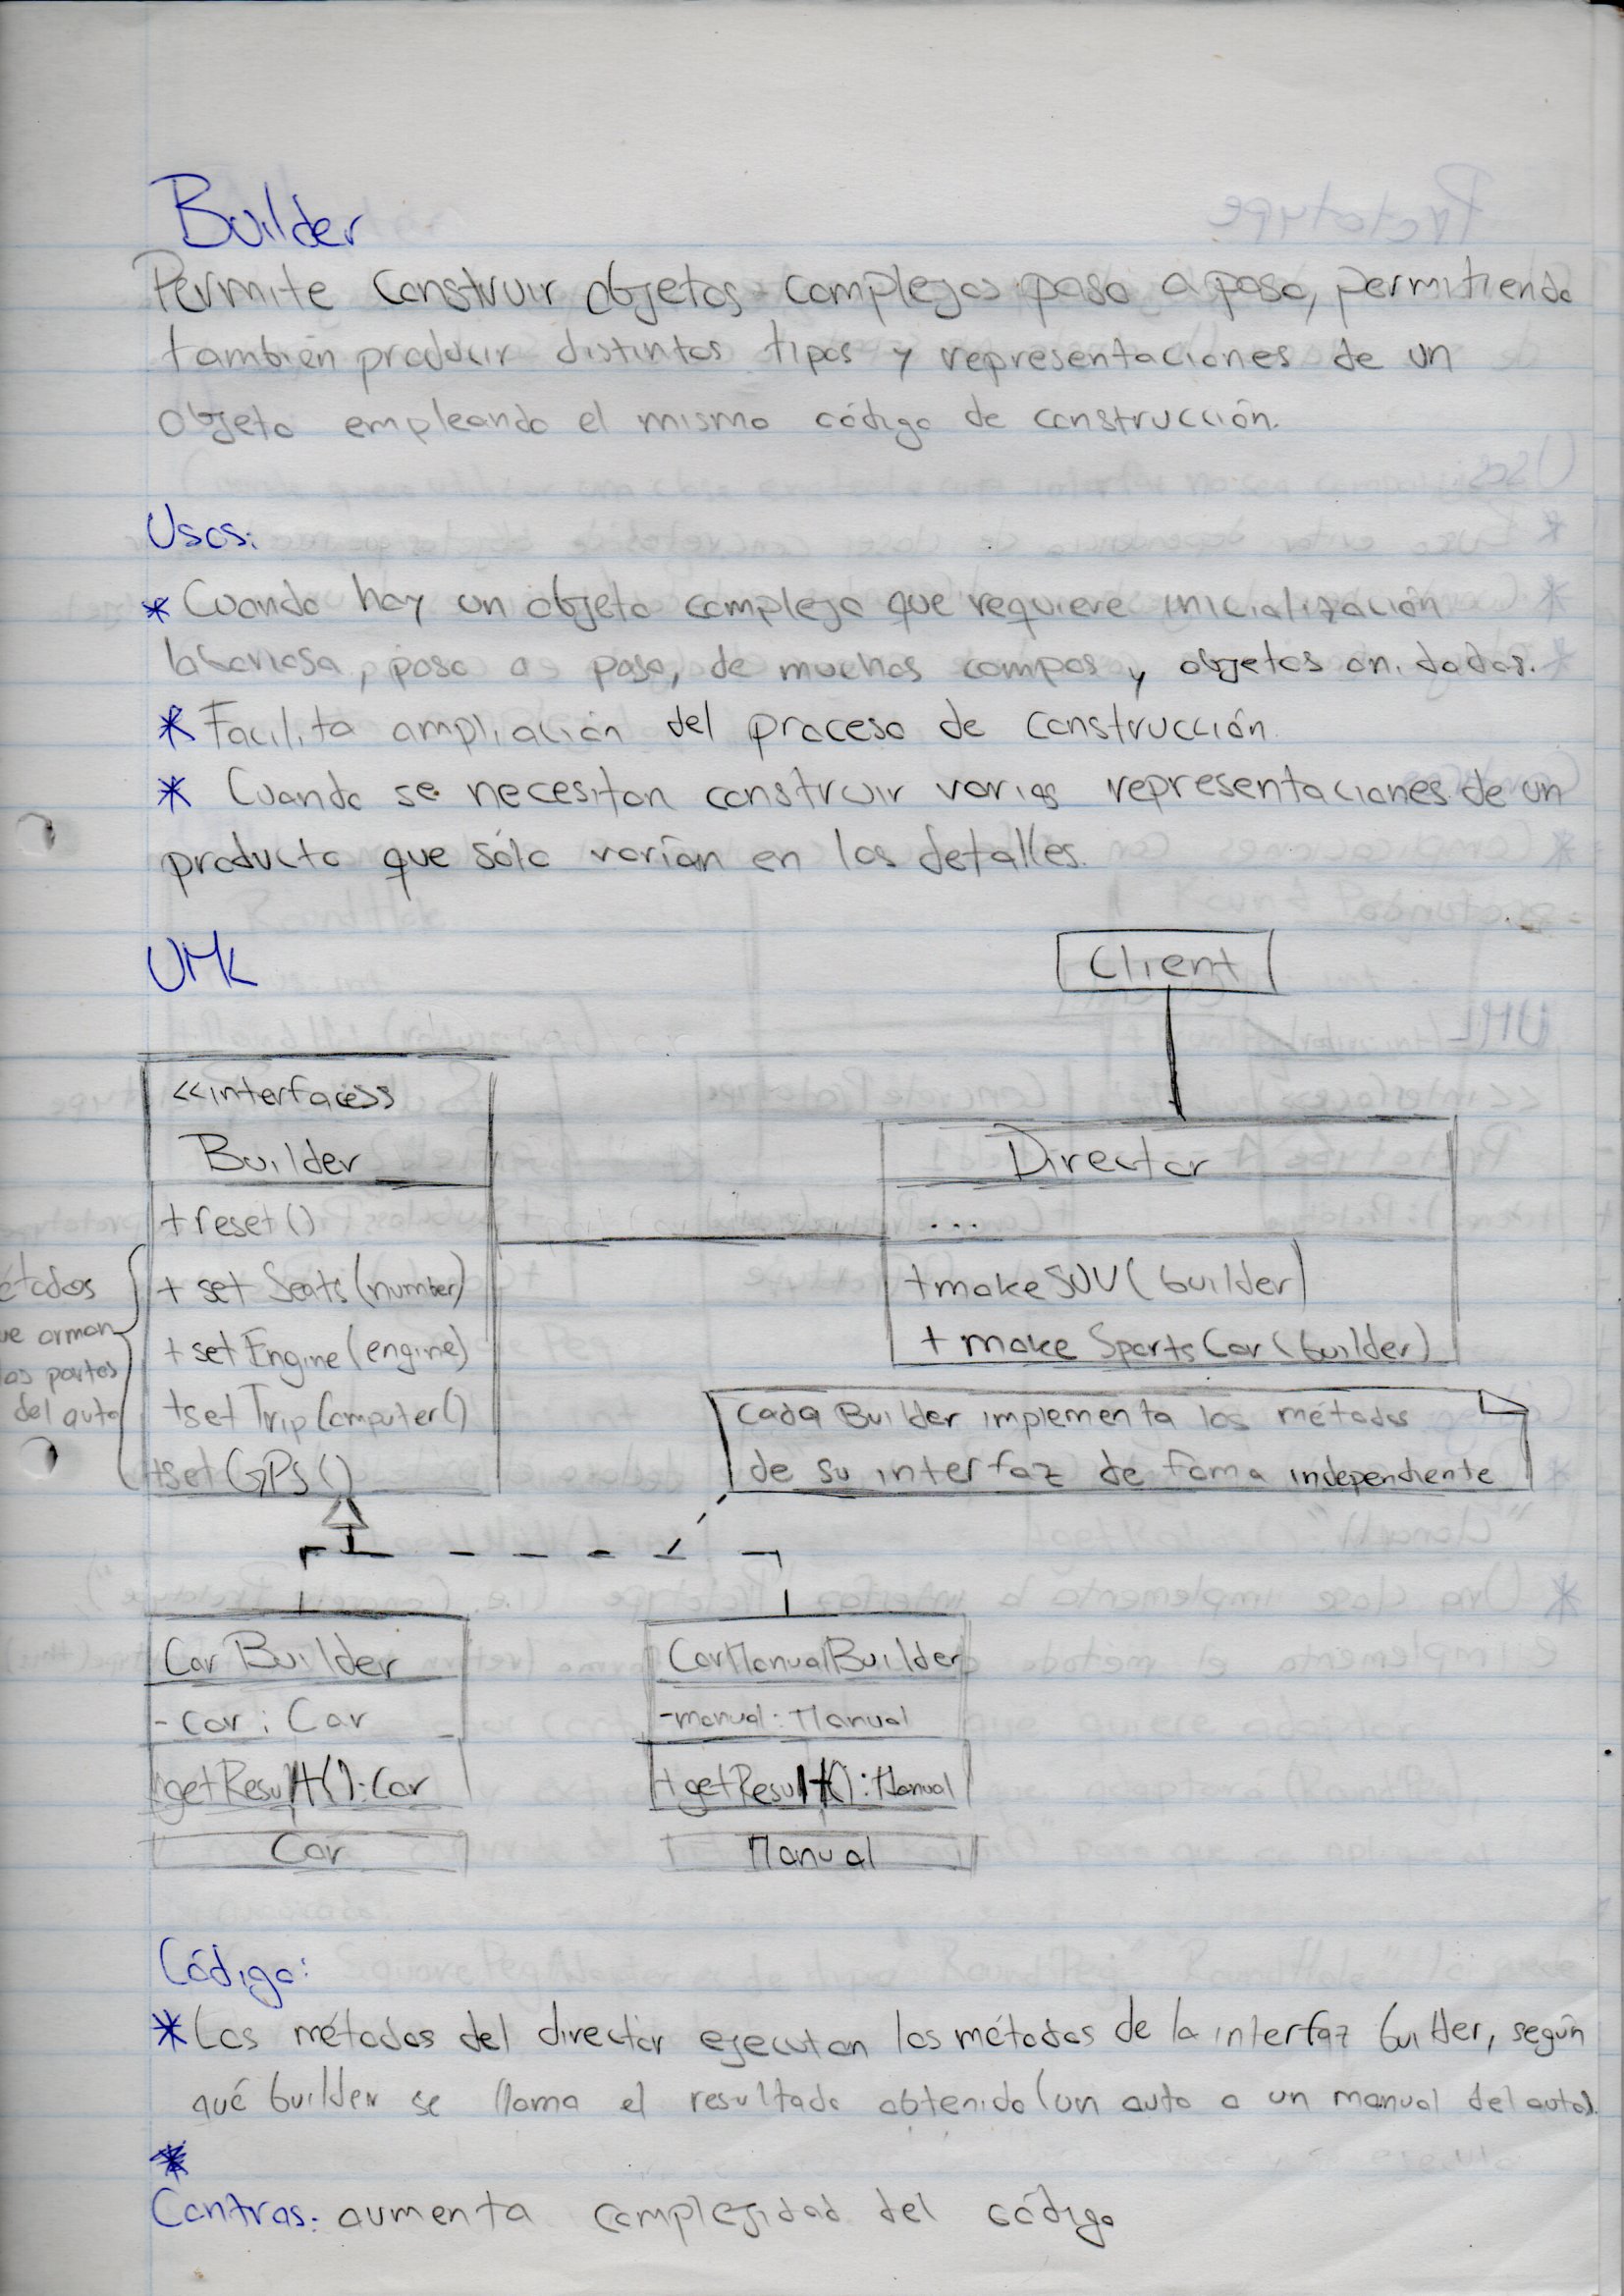 Builder
Permite construir objetos complejos paso a paso, permitiendo
también producir distintos tipos y representaciones de un
objeto empleando el mismo código de construcción.
Usos:
* Cuando hay un objeto complejo que requiere inicialización
laboriosa, paso a paso, de muchos campos y objetos anidados.
* Facilita ampliación del proceso de construcción.
* Cuando se necesitan construir varias representaciones de un
producto que sólo varían en los detalles.
UML
Client
<<interface>>
Builder
+reset()
+ setSeats(number)
+ setEngine(engine)
+setTripComputer()
+setGPS()
étodos
ue arman
las partes
del auto
Director
...
+makeSUV(builder)
+ makeSportsCar(builder)
Cada Builder implementa los métodos
de su interfaz de foma independiente
CarBuilder
-car: Car
+getResult():Car
Car
CarManualBuilder
-manual: Manual
+getResult():Manual
Manual
Código:
* Los métodos del director ejecutan los métodos de la interfaz builder, según
qué builder se llama el resultado obtenido (un auto o un manual del auto).
*
Contras: aumenta complejidad del código